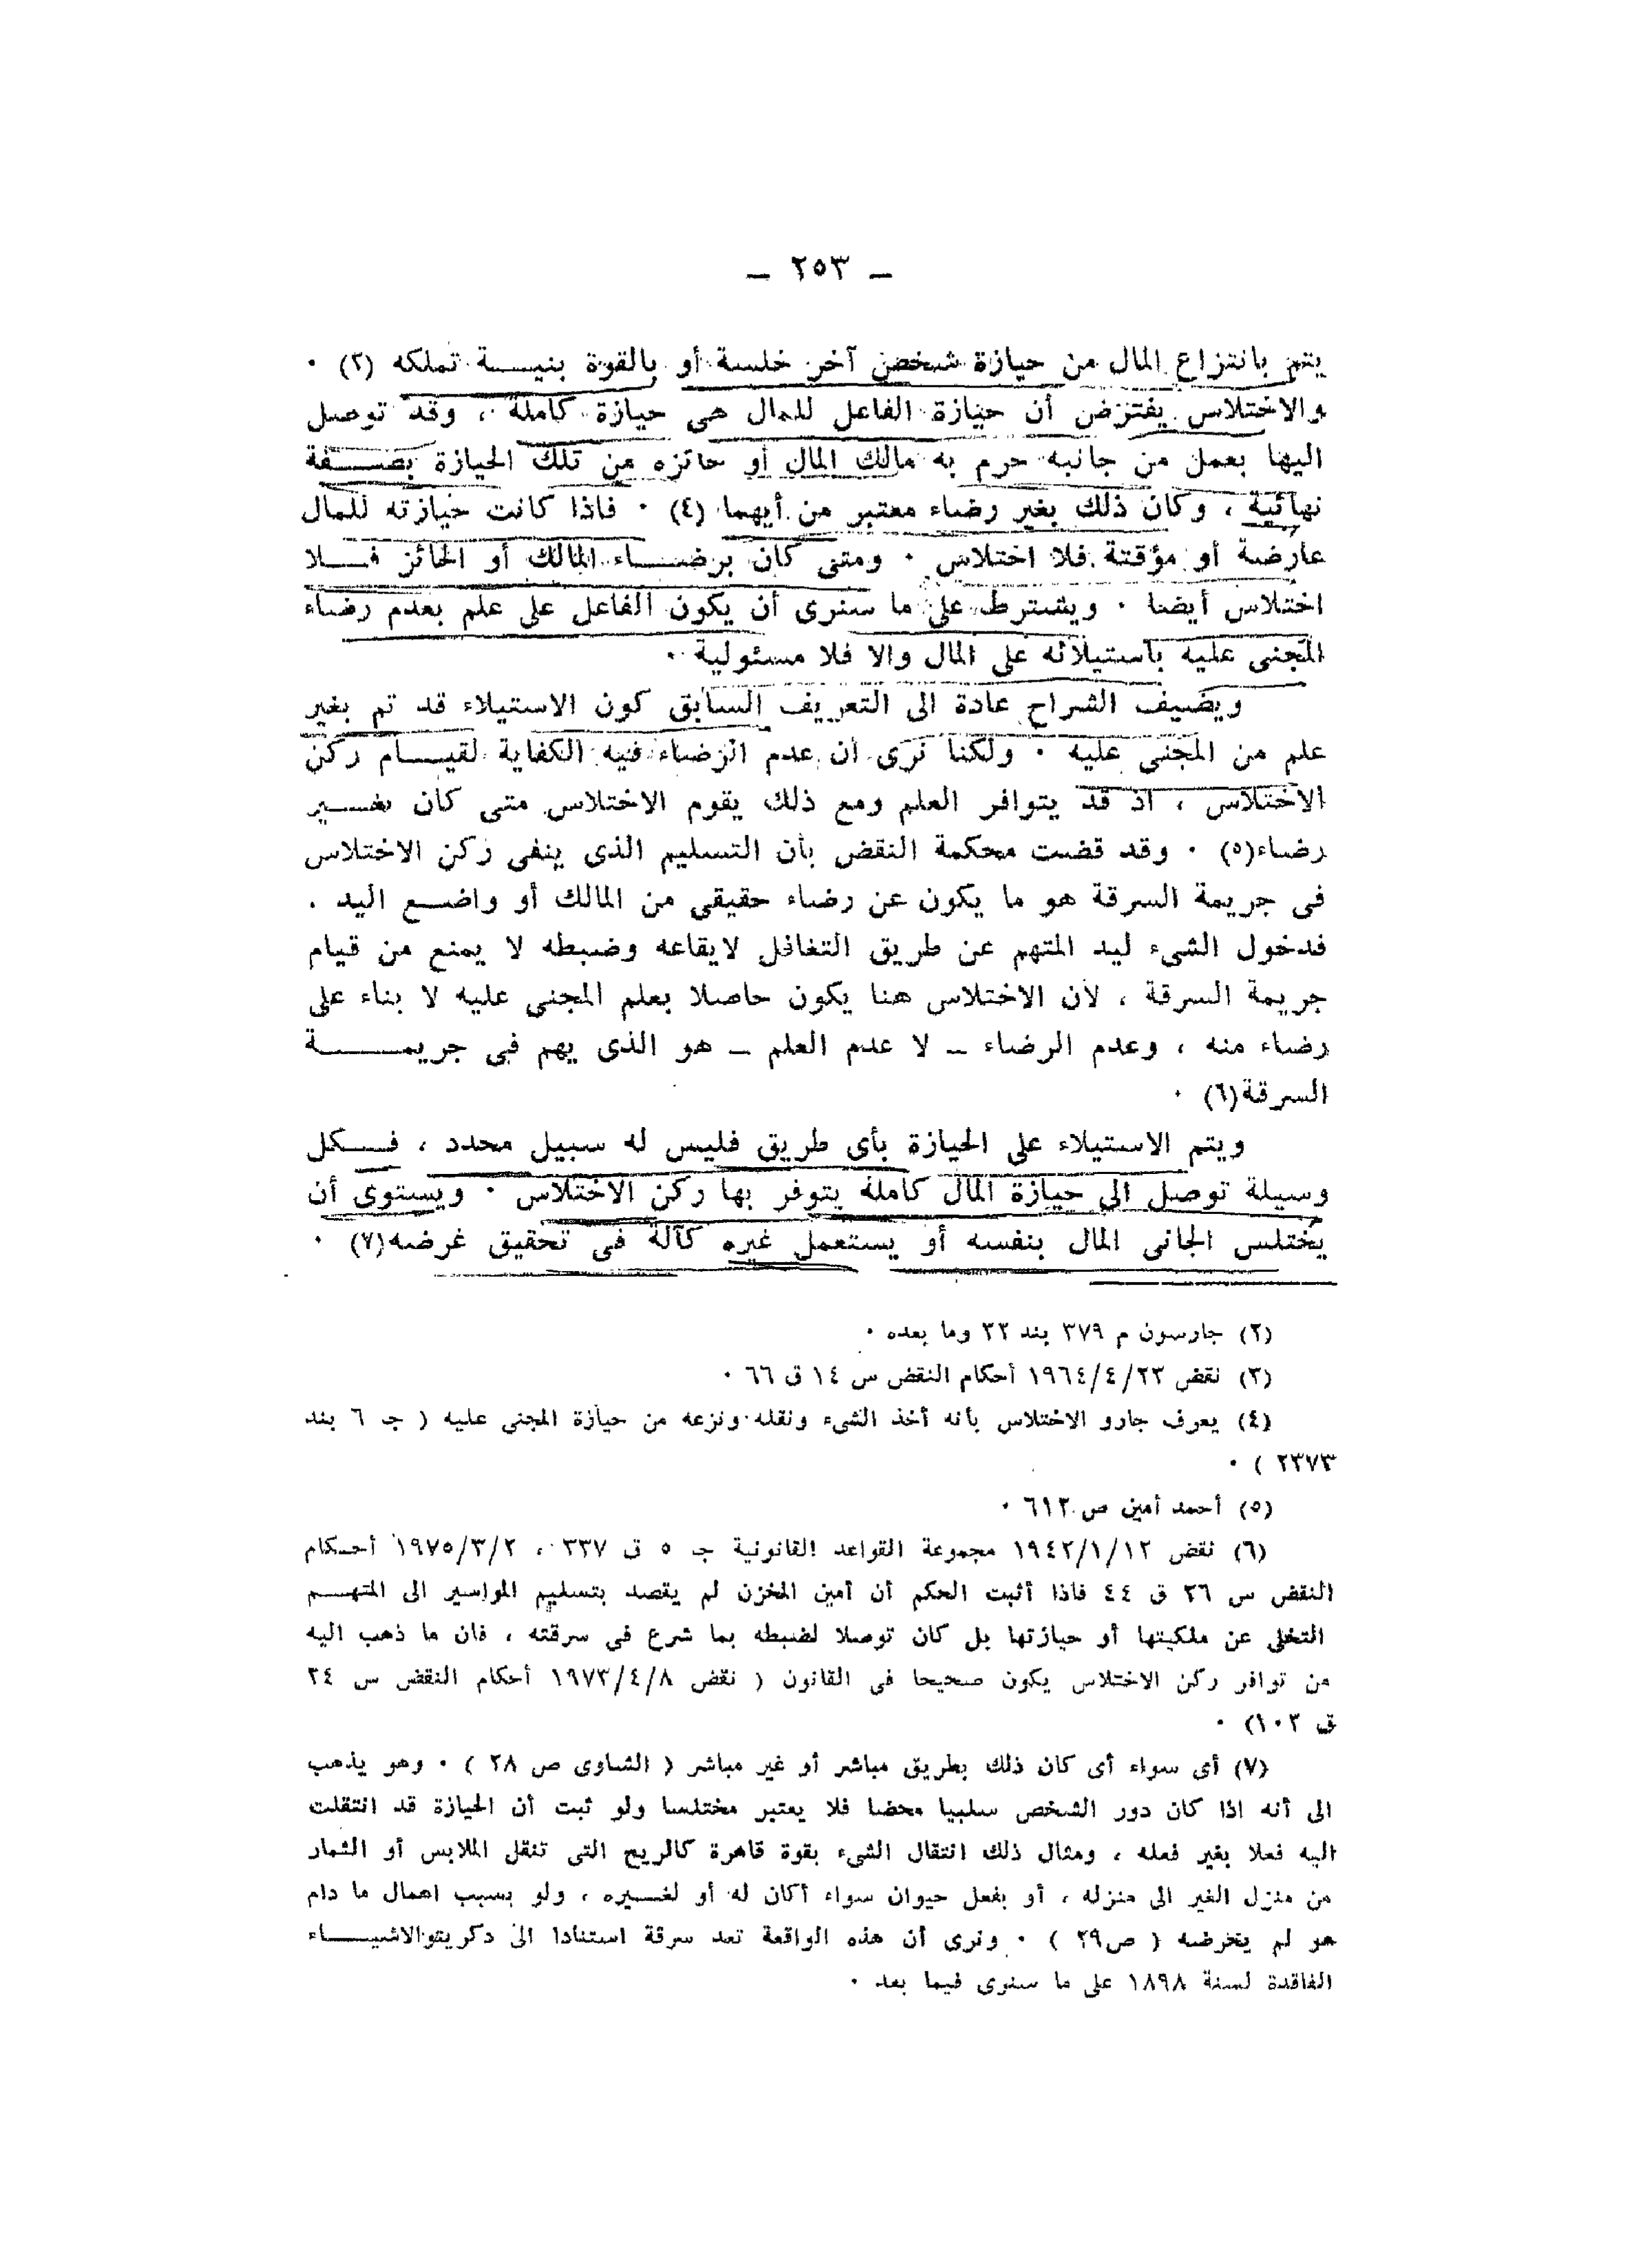 — ٢٥٣ —
يتم بانتزاع المال من حيازة شخص آخر خلسة أو بالقوة بنيـــة تملكه (٣) ٠
والاختلاس يفترض أن حيازة الفاعل للمال هى حيازة كاملة ، وقد توصل
اليها بعمل من جانبه حرم به مالك المال أو حائزه من تلك الحيازة بصــفة
نهائية ، وكان ذلك بغير رضاء معتبر من أيهما (٤) ٠ فاذا كانت حيازته للمال
عارضة أو مؤقتة فلا اختلاس ٠ ومتى كان برضـــاء المالك أو الحائز فــلا
اختلاس أيضا ٠ ويشترط على ما سنرى أن يكون الفاعل على علم بعدم رضاء
المجنى عليه باستيلائه على المال والا فلا مسئولية ٠
ويضيف الشراح عادة الى التعريف السابق كون الاستيلاء قد تم بغير
علم من المجنى عليه ٠ ولكنا نرى أن عدم الرضاء فيه الكفاية لقيــام ركن
الاختلاس ، اذ قد يتوافر العلم ومع ذلك يقوم الاختلاس متى كان بغــير
رضاء(٥) ٠ وقد قضت محكمة النقض بأن التسليم الذى ينفى ركن الاختلاس
فى جريمة السرقة هو ما يكون عن رضاء حقيقى من المالك أو واضــع اليد .
فدخول الشىء ليد المتهم عن طريق التغافل لايقاعه وضبطه لا يمنع من قيام
جريمة السرقة ، لأن الاختلاس هنا يكون حاصلا بعلم المجنى عليه لا بناء على
رضاء منه ، وعدم الرضاء ــ لا عدم العلم ــ هو الذى يهم فى جريمـــــة
السرقة(٦) ٠
ويتم الاستيلاء على الحيازة بأى طريق فليس له سبيل محدد ، فــكل
وسيلة توصل الى حيازة المال كاملة يتوفر بها ركن الاختلاس ٠ ويستوى أن
يختلس الجانى المال بنفسه أو يستعمل غيره كآلة فى تحقيق غرضه(٧) ٠
(٢) جارسون م ٣٧٩ بند ٣٣ وما بعده ٠
(٣) نقض ١٩٦٤/٤/٢٣ أحكام النقض س ١٤ ق ٦٦ ٠
(٤) يعرف جارو الاختلاس بأنه أخذ الشىء ونقله ونزعه من حيازة المجنى عليه ( جـ ٦ بند
٢٣٧٣ ) ٠
(٥) أحمد أمين ص ٦١٢ ٠
(٦) نقض ١٩٤٢/١/١٢ مجموعة القواعد القانونية جـ ٥ ق ٣٣٧ ، ١٩٧٥/٣/٢ أحــكام
النقض س ٢٦ ق ٤٤ فاذا أثبت الحكم أن أمين المخزن لم يقصد بتسليم المواسير الى المتهــم
التخلى عن ملكيتها أو حيازتها بل كان توصلا لضبطه بما شرع فى سرقته ، فان ما ذهب اليه
من توافر ركن الاختلاس يكون صحيحا فى القانون ( نقض ١٩٧٣/٤/٨ أحكام النقض س ٢٤
ق ١٠٣) ٠
(٧) أى سواء أى كان ذلك بطريق مباشر أو غير مباشر ( الشاوى ص ٢٨ ) ٠ وهو يذهب
الى أنه اذا كان دور الشخص سلبيا محضا فلا يعتبر مختلسا ولو ثبت أن الحيازة قد انتقلت
اليه فعلا بغير فعله ، ومثال ذلك انتقال الشىء بقوة قاهرة كالريح التى تنقل الملابس أو الثمار
من منزل الغير الى منزله ، أو بفعل حيوان سواء أكان له أو لغــيره ، ولو بسبب اهمال ما دام
هو لم يحرضه ( ص٢٩ ) ٠ ونرى أن هذه الواقعة تعد سرقة استنادا الى دكريتو الاشيـــاء
الفاقدة لسنة ١٨٩٨ على ما سنرى فيما بعد ٠